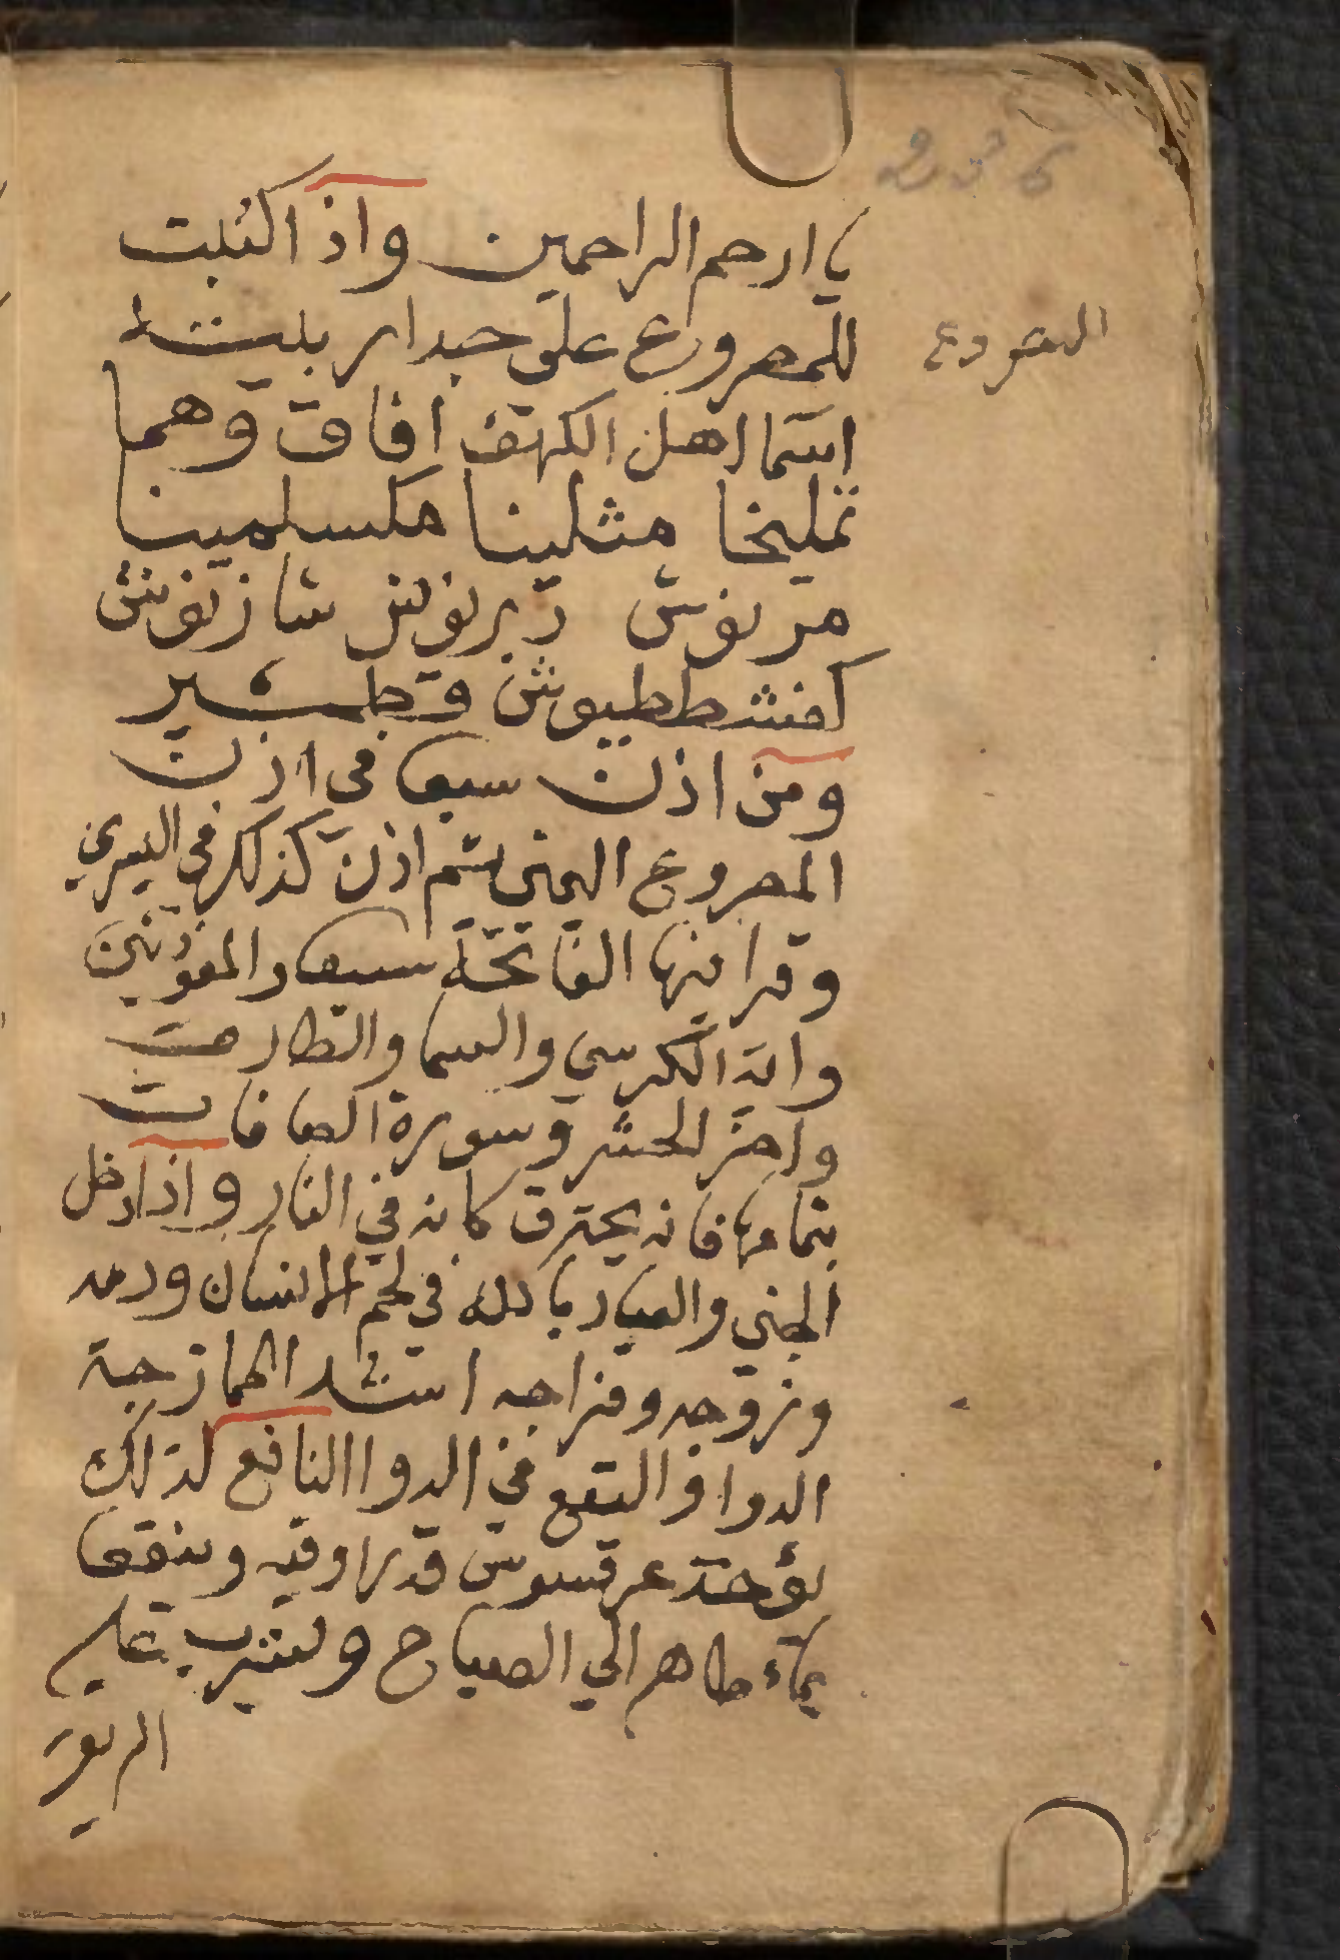 236
يا ارحم الراحمين واذا كتبت
للمصروع على جدار بيته
اسما اهل الكهف افاق وهما
تمليخا مثلينا مكسلمينا
مرنوش دبرنوش شازنوش
كفشططيوش قطمير
ومن اذن سبعا في اذن
المصروع اليمني ثم اذن كذلك في اليسري
وقرا فيها الفاتحة سبعا والمعوذتين
واية الكرسي والسما والطارق
واخر الحشر وسورة الصافات
بتمامها فانه يحترق كانه في النار واذا دخل
الجني والعياذ بالله في لحم الانسان ودمه
وروحه ومزاجه اشد الممازجة
الدوا فالتقع في الدوا النافع لذلك
يؤخذ عرقسوس قدر اوقيه وينقعا
بماء طاهر الي الصباح ويشرب علي
الريق
المصروع